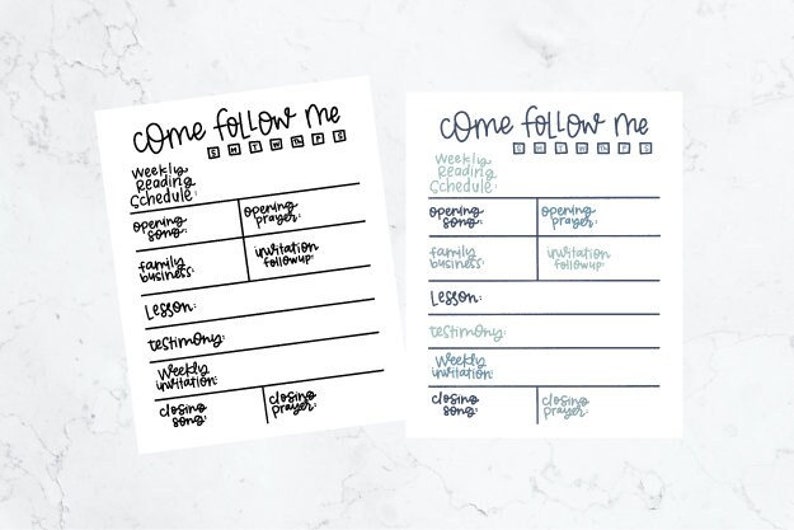 come follow me
S M T W Th F S
Weekly
Reading
Schedule:
opening
song:
opening
prayer:
family
business:
invitation
followup:
Lesson:
testimony:
Weekly
invitation:
closing
song:
closing
prayer:
come follow me
S M T W Th F S
Weekly
Reading
Schedule:
opening
song:
opening
prayer:
family
business:
invitation
followup:
Lesson:
testimony:
Weekly
invitation:
closing
song:
closing
prayer: